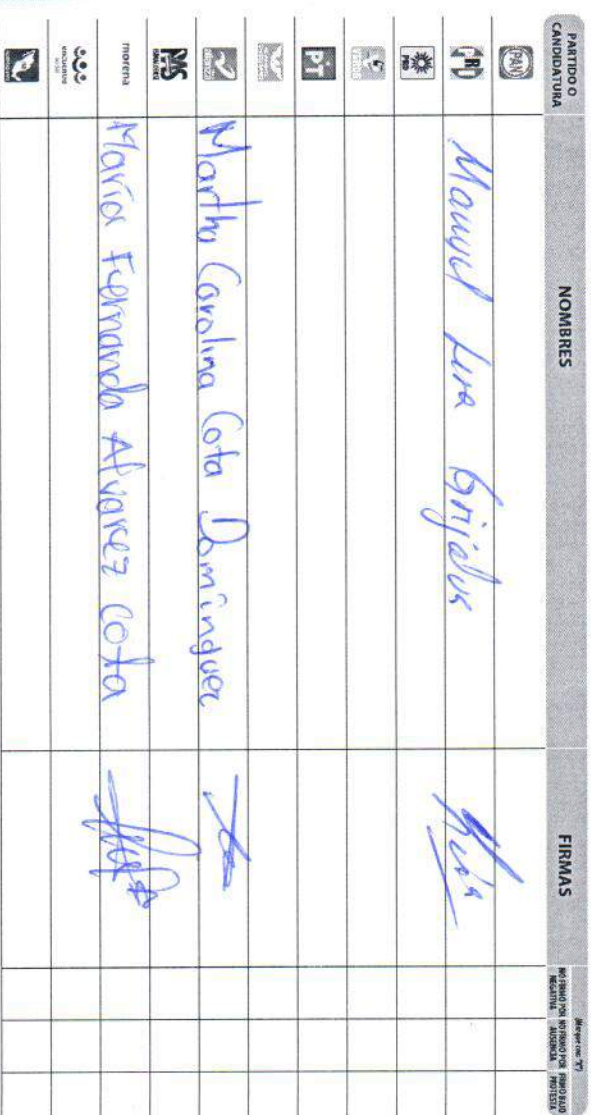 PARTIDO O
CANDIDATURA
NOMBRES
FIRMAS
(Marque con "X")
NO FIRMÓ POR NEGATIVA
NO FIRMÓ POR AUSENCIA
FIRMÓ BAJO PROTESTA
PAN
PRI
Manuel Lira Grijalva
PRD
VERDE
PT
alianza
Martha Carolina Cota Domínguez
PAS
SINALOENSE
morena
María Fernanda Alvarez Cota
encuentro
social